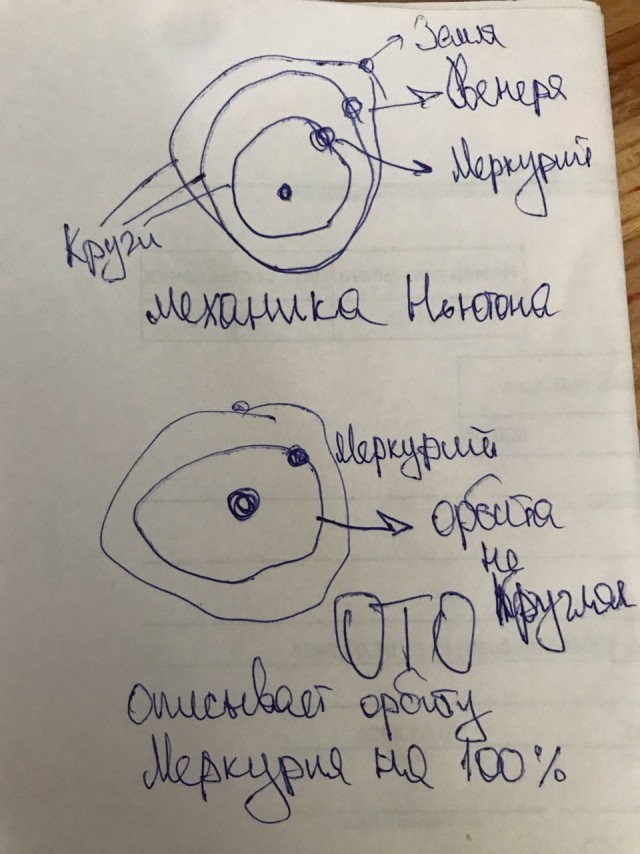 Земля
Венера
Меркурий
Круги
Механика Ньютона
Меркурий
орбита
не
Круглая
ОТО
описывает орбиту
Меркурия на 100%